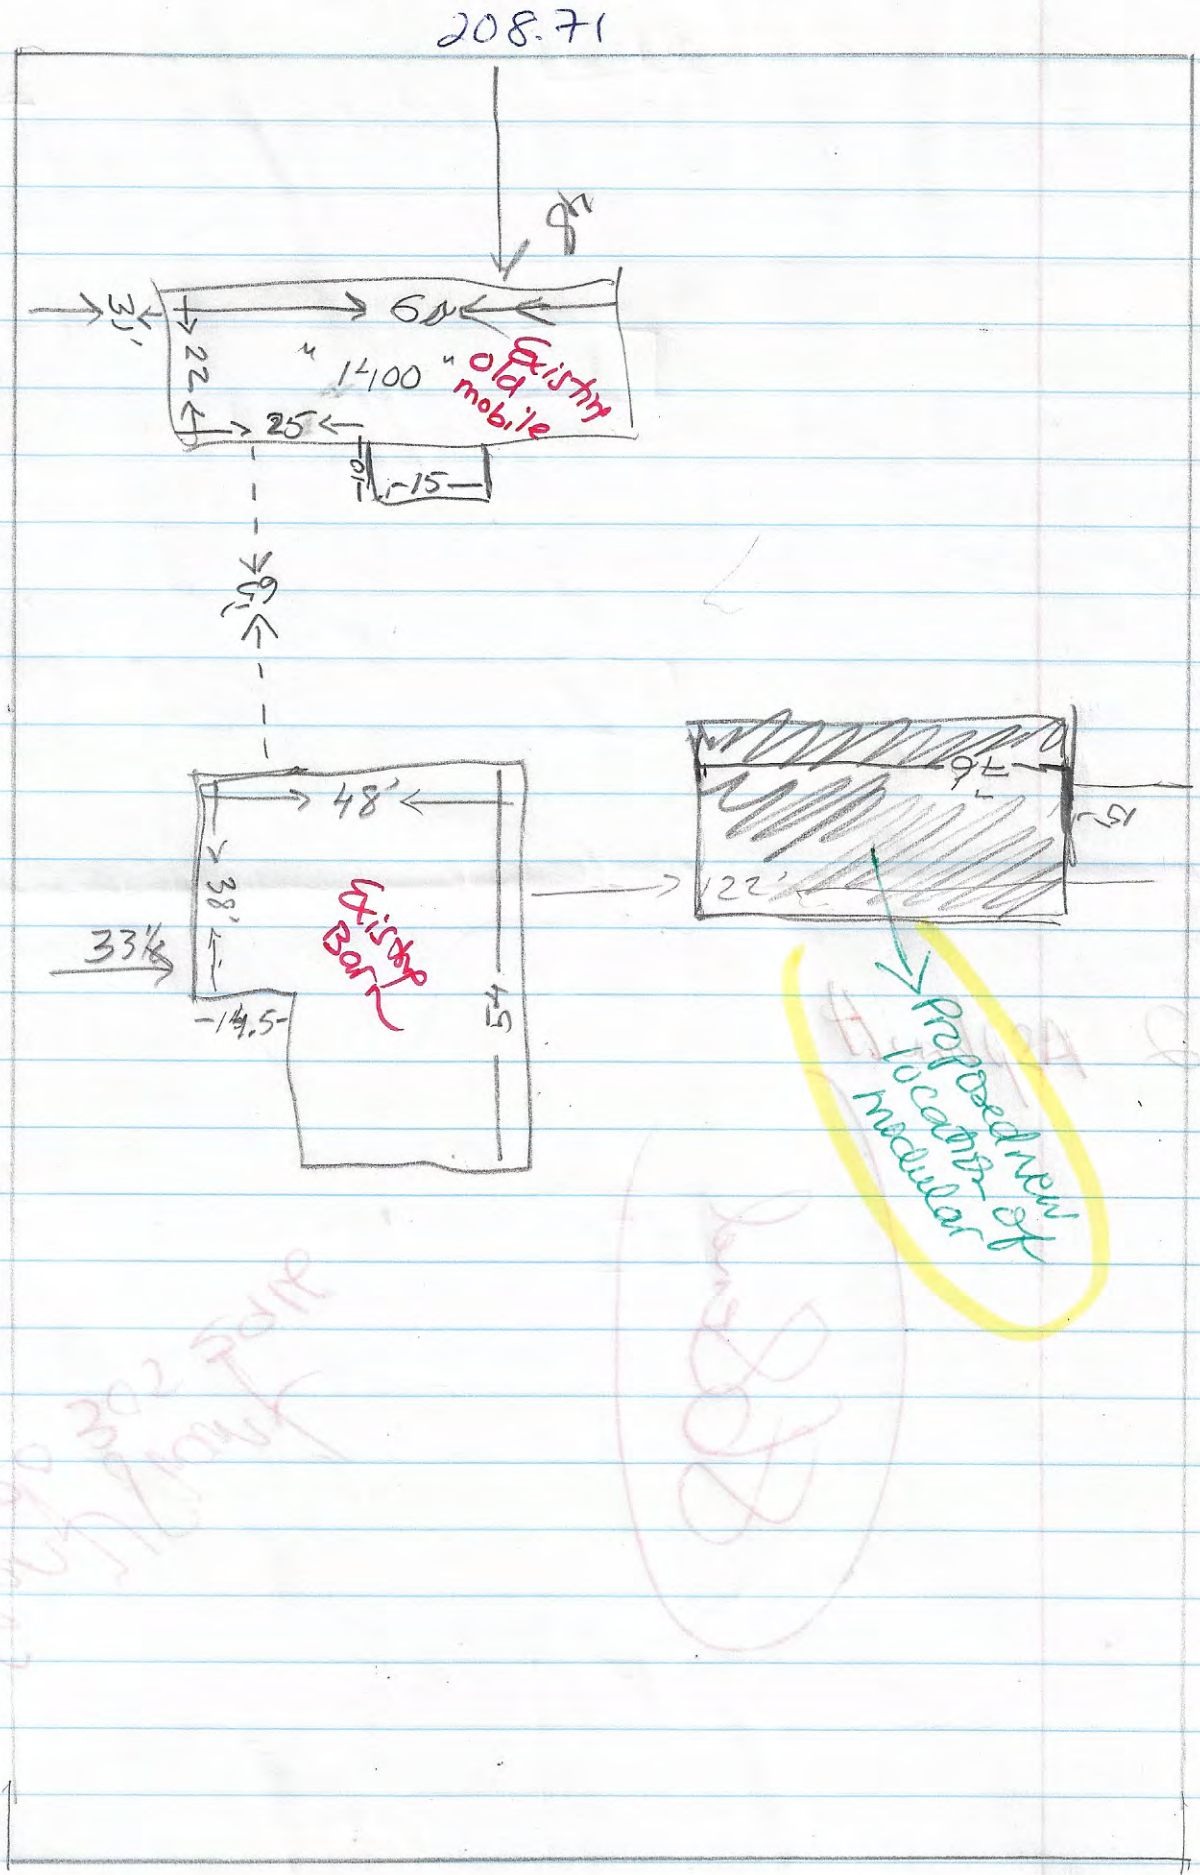 208.71
31'
60
22
"1400"
Existing
old
mobile
25
10
15
65'
48'
38'
33 1/2
54
-14.5-
Existing
Barn
76
15'
122'
Proposed new
location of
modular